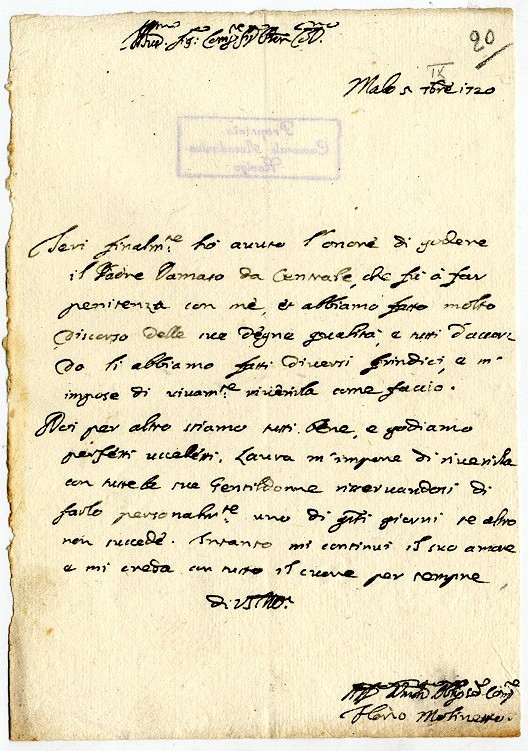 20
IX
Malo 5 7bre 1720
Proprietà
Comunale Accademica
Rovigo
Ieri finalmte hò avuto l'onore di godere
il Padre Damaso da Centrale, che fù à far
penitenza con mè, et abbiamo fatto molto
discorso delle sue degne qualità, e tutti d'accor
do li abbiamo fatti diversi brindici, e m'
impose di vivamte riverirla come faccio.
Noi per altro stiamo tutti bene, e godiamo
perfetti uccelletti. Laura m'impone di riverirla
con tutte le sue Gentildonne riservandosi di
farlo personalmte uno di qsti giorni se altro
non succede. Intanto mi continui il suo amore
e mi creda con tutto il cuore per sempre
di VS Illma
Florio Molinetto